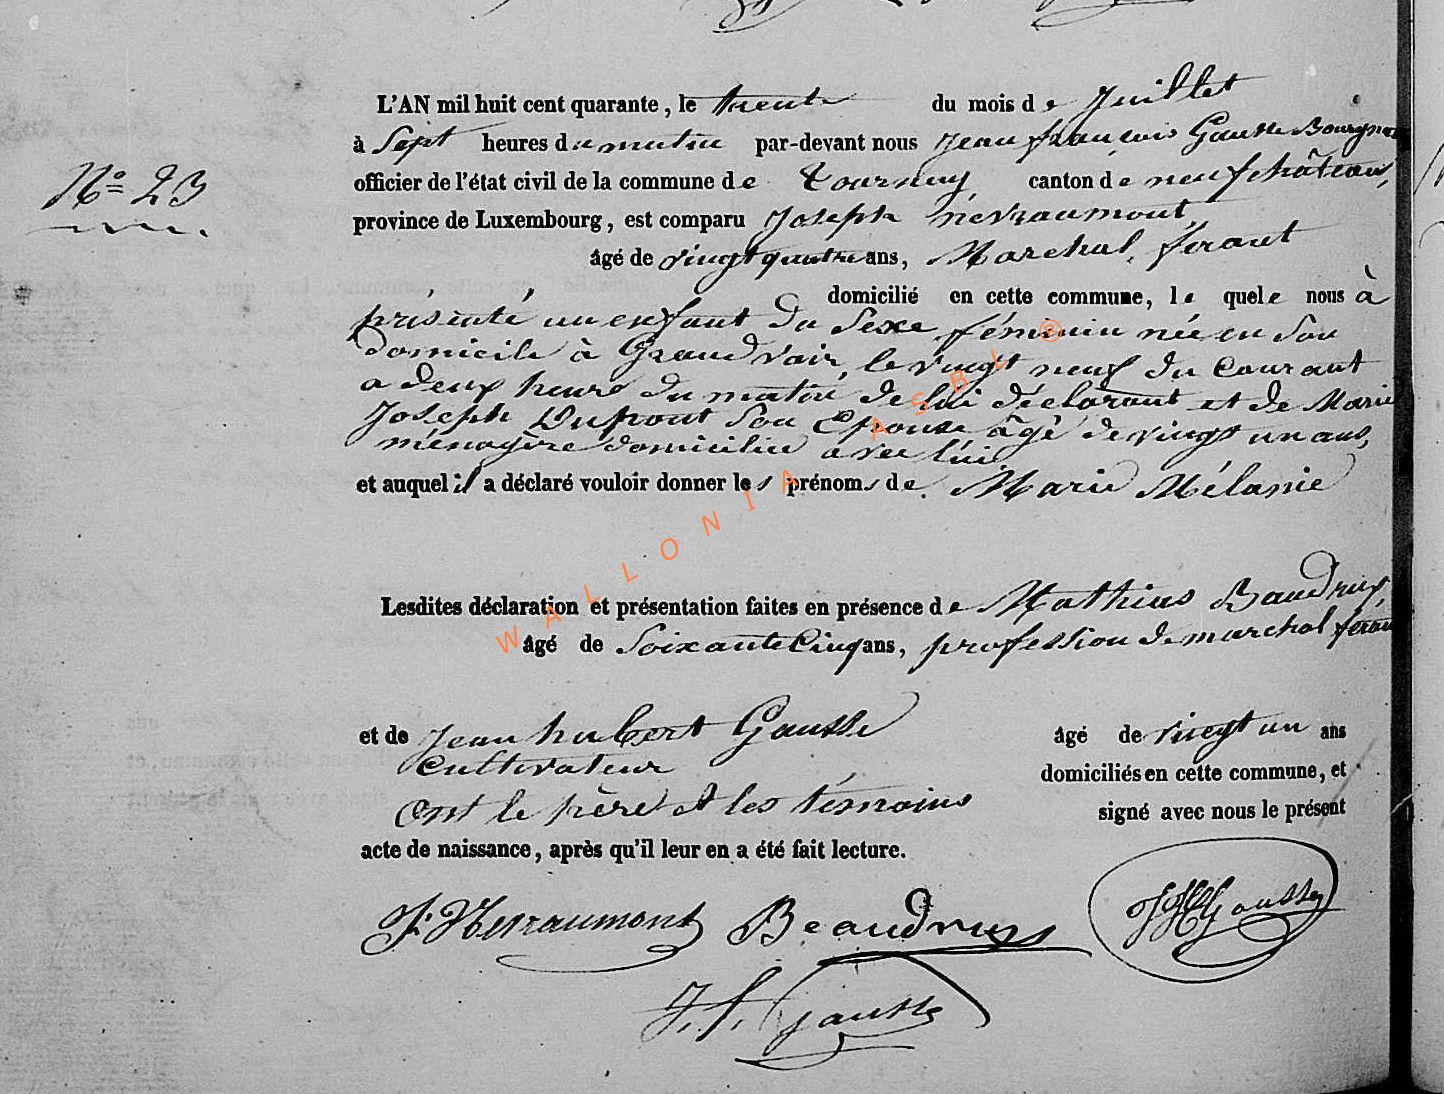 L'AN mil huit cent quarante, le trente du mois de Juillet
à Sept heures du matin par-devant nous Jean françois Gausse Bourgmes
N° 23
officier de l'état civil de la commune de tournay, canton de neufchâteau,
province de Luxembourg, est comparu Joseph nevraumont,
âgé de vingt quatre ans, Marechal, ferant
domicilié en cette commune, le quel nous à
présenté un enfant du Sexe féminin née en Son
domicile à Grandvoir, le vingt neuf du courant
a deux heure du matin de lui déclarant et de Marie
Joseph Dupont Son Epouse âgé de vingt un ans,
ménagère domicilié avec lui
et auquel il a déclaré vouloir donner les prénoms de. Marie Mélanie
Lesdites déclaration et présentation faites en présence de Mathieu Baudrux
âgé de Soixante Cinq ans, profession de marechal feran
et de Jean hubert Gausse âgé de vingt un ans
cultivateur domiciliés en cette commune, et
ont le père et les témoins signé avec nous le présent
acte de naissance, après qu'il leur en a été fait lecture.
J. Nevraumont Beaudrux JH Gausse
J. f. Gausse
WALLONIA ASBL ®